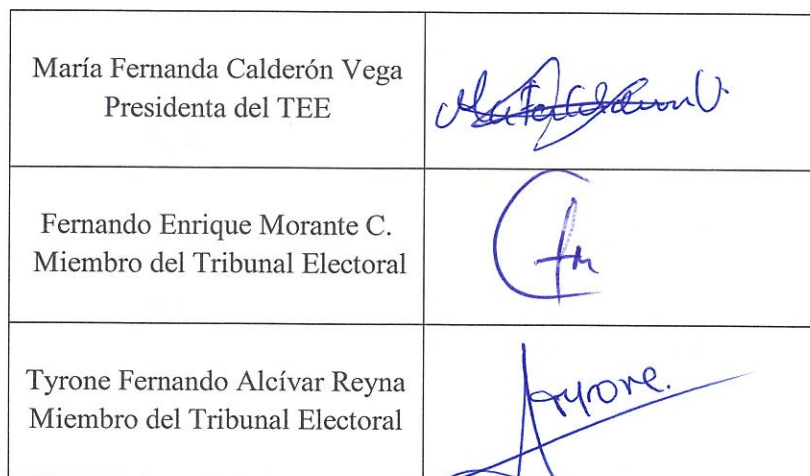 María Fernanda Calderón Vega
Presidenta del TEE
Fernando Enrique Morante C.
Miembro del Tribunal Electoral
Tyrone Fernando Alcívar Reyna
Miembro del Tribunal Electoral
Tyrone.